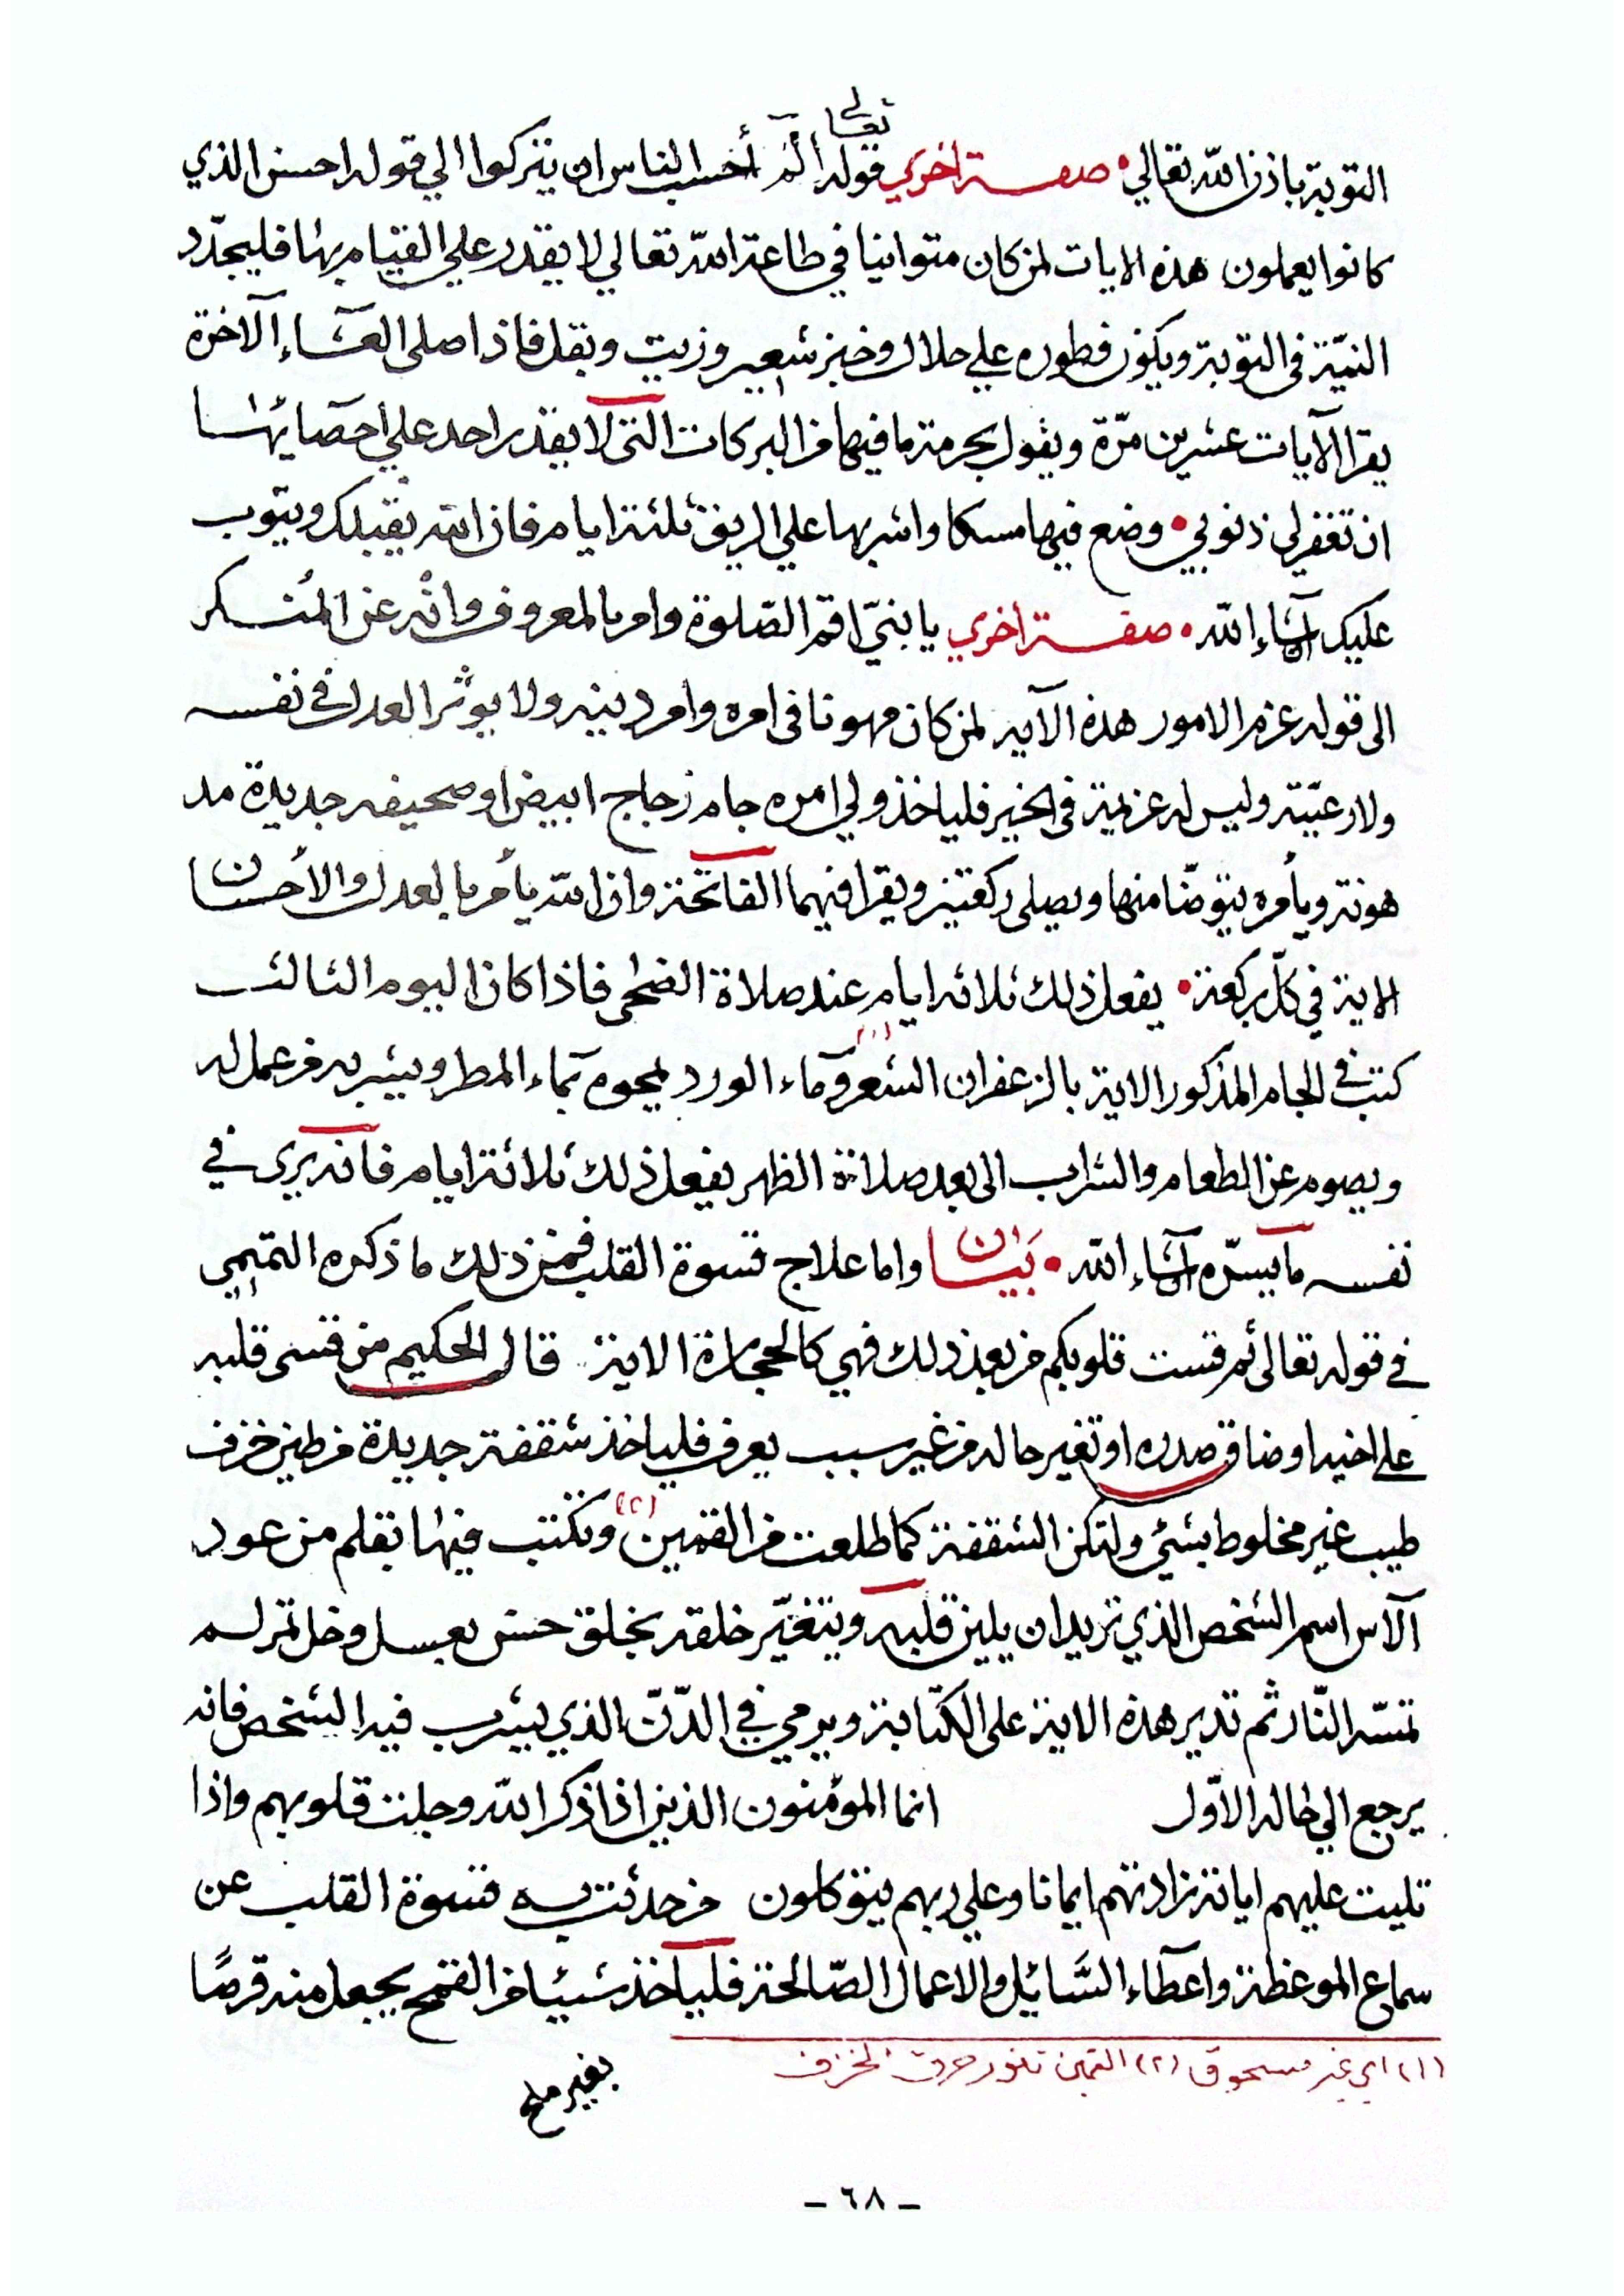 تعالى
التوبة باذن الله تعالي • صفة اخري قوله الم أحسب الناس ان يتركوا الي قوله احسن الذي
كانوا يعملون هذه الايات لمن كان متوانيا في طاعة الله تعالي لا يقدر علي القيام بها فليجدّد
النيّة فى التوبة ويكون فطوره علي حلال وخبز شعير وزيت وبقل فاذا صلى العشاء الآخرة
يقرا الآيات عشرين مرّة ويقول بحرمة ما فيها من البركات التى لا يقدر احد علي احصائها
ان تغفر لي ذنوبي • وضع فيها مسكا واشربها علي الريق ثلثة ايام فان الله يقبلك ويتوب
عليك ان شاء الله • صفة اخري يا بنيّ اقم الصّلوة وامر بالمعروف وانْه عن المُنكر
الى قوله عزم الامور هذه الآية لمن كان مهونا فى امره وامر دينه ولا يوثر العدل في نفسه
ولا رعيّته وليس له عزيمة فى الخير فلياخذ ولي امره جام زجاج ابيض او صحيفه جديدة مد
هونة ويأمره يتوضّا منها ويصلى ركعتين ويقرا فيهما الفاتحة وان الله يأمر بالعدل والأحسان
الاية في كلّ ركعة • يفعل ذلك ثلاثه ايام عند صلاة الضحى فاذا كان اليوم الثالث
كتب في الجام المذكور الاية بالزعفران الشعر (١) وماء الورد يمحوه بماء المطر ويشربه من عمل له
ويصوم عن الطعام والشراب الى بعد صلاة الظهر يفعل ذلك ثلاثة ايام فانه يري في
نفسه ما يسرّه ان شاء الله • بَيَان واما علاج قسوة القلب فمن ذلك ما ذكره التميمي
في قوله تعالى ثم قست قلوبكم من بعد ذلك فهي كالحجارة الاية قال الحكيم من قسى قلبه
على اخيه او ضاق صدره او تغير حاله من غير سبب يعرف فلياخذ شقفة جديدة من طين خزف
طيب غير مخلوط بشئ ولتكن الشقفة كما طلعت من القمين (٢) وتكتب فيها بقلم من عود
الآس اسم الشخص الذي تريد ان يلين قلبه ويتغيّر خلقه بخلق حسن بعسل وخل تمر لم
تمسّه النّار ثم تدير هذه الاية على الكتابة ويرمي في الدّنّ الذي يشرب فيه الشخص فانه
يرجع الي حاله الاوّل انما المؤمنون الذين اذا ذكر الله وجلت قلوبهم واذا
تليت عليهم اياته زادتهم ايمانا وعلي ربهم يتوكلون من حدثت به قسوة القلب عن
سماع الموعظة واعطاء السَّائِل والاعمال الصّالحة فلياخذ شيئا من القمح يجعل منه قرصًا
(١) اي غير مسحوق (٢) القمين تنور حرق الخزف
بغير ملح
- ٦٨ -